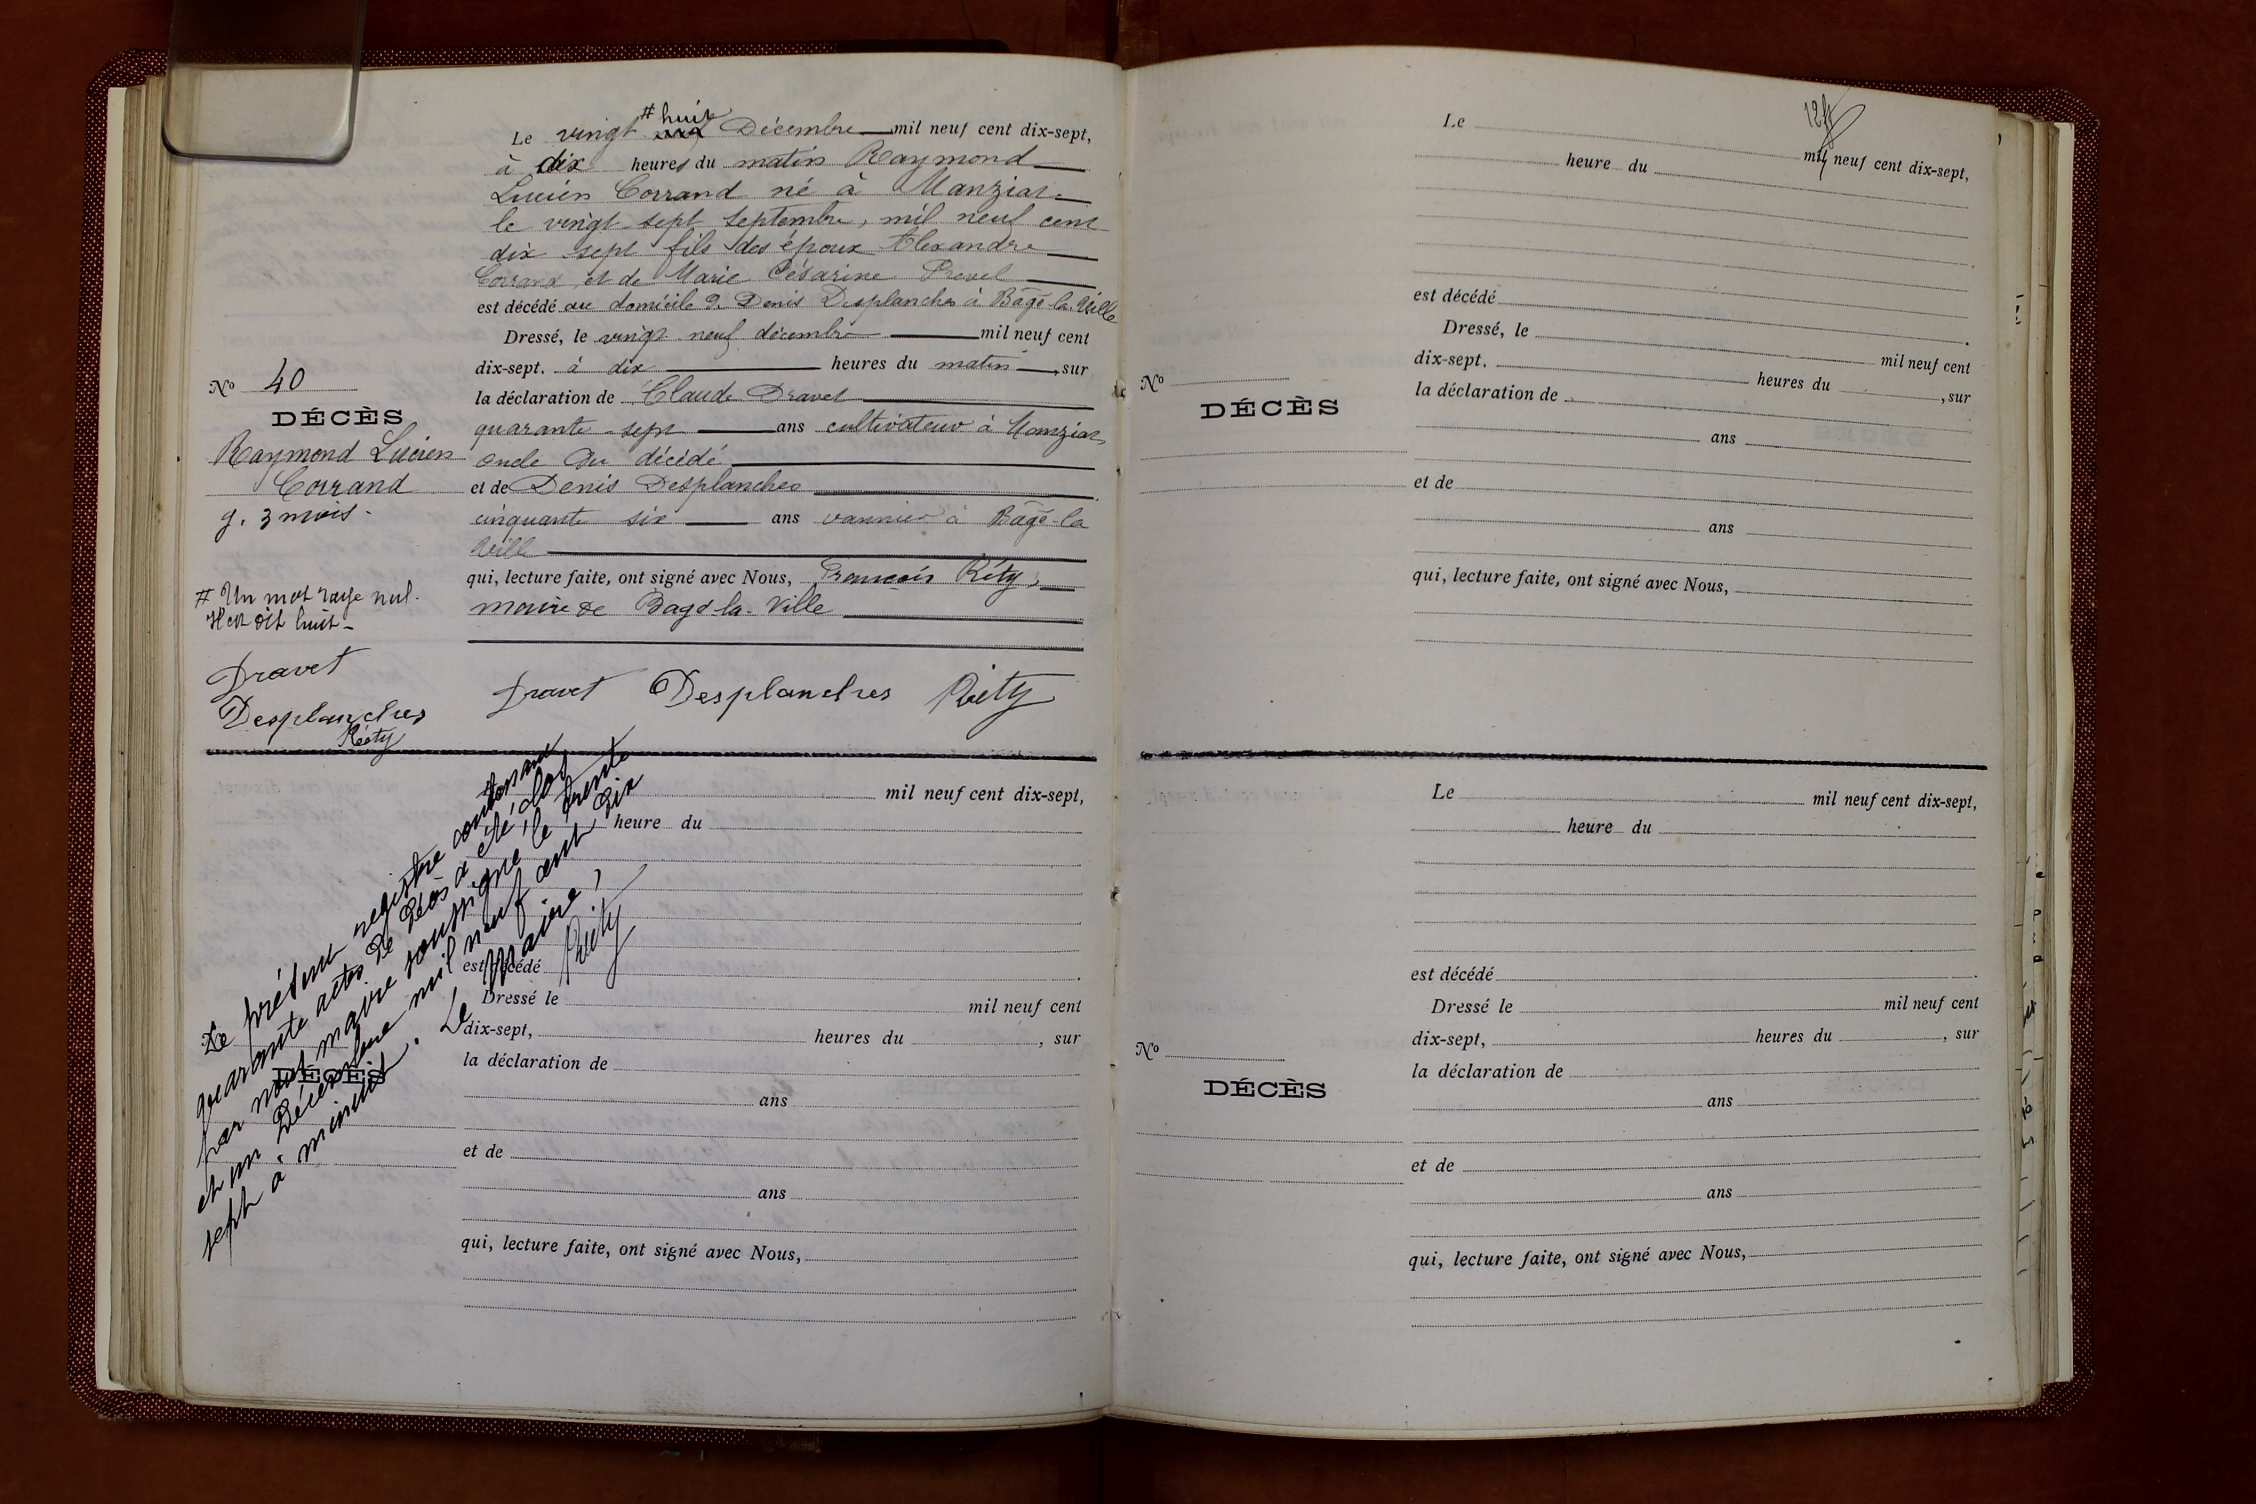 Le vingt # huit neuf Décembre mil neuf cent dix-sept,
à dix heures du matin Raymond
Lucien Corrand né à Manziat
le vingt sept septembre, mil neuf cent
dix sept fils des époux Alexandre
Corrand et de Marie Césarine Dravet
est décédé au domicile de Denis Desplanches à Bâgé-la-Ville
Dressé, le vingt neuf décembre mil neuf cent
dix-sept. à dix heures du matin, sur
la déclaration de Claude Dravet
quarante-sept ans cultivateur à Manziat
oncle du décédé
et de Denis Desplanches
cinquante six ans vannier à Bâgé-la
Ville
qui, lecture faite, ont signé avec Nous, François Réty,
maire de Bagé-la-Ville
Dravet Desplanches Réty
No 40
DÉCÈS
Raymond Lucien
Corrand
g. 3 mois.
# Un mot rayé nul.
Il est dit huit
Dravet
Desplanches
Réty
Le présent registre contenant
quarante actes de décès a été clos
par nous maire soussigné le trente
et un Décembre mil neuf cent dix
sept à minuit. Le Maire,
Réty
mil neuf cent dix-sept,
heure du
est décédé
Dressé le mil neuf cent
dix-sept, heures du , sur
la déclaration de
DÉCÈS
ans
et de
ans
qui, lecture faite, ont signé avec Nous,
Le mil neuf cent dix-sept,
heure du
est décédé
Dressé, le mil neuf cent
dix-sept. heures du , sur
No
DÉCÈS
la déclaration de
ans
et de
ans
qui, lecture faite, ont signé avec Nous,
Le mil neuf cent dix-sept,
heure du
est décédé
Dressé le mil neuf cent
dix-sept, heures du , sur
No
DÉCÈS
la déclaration de
ans
et de
ans
qui, lecture faite, ont signé avec Nous,